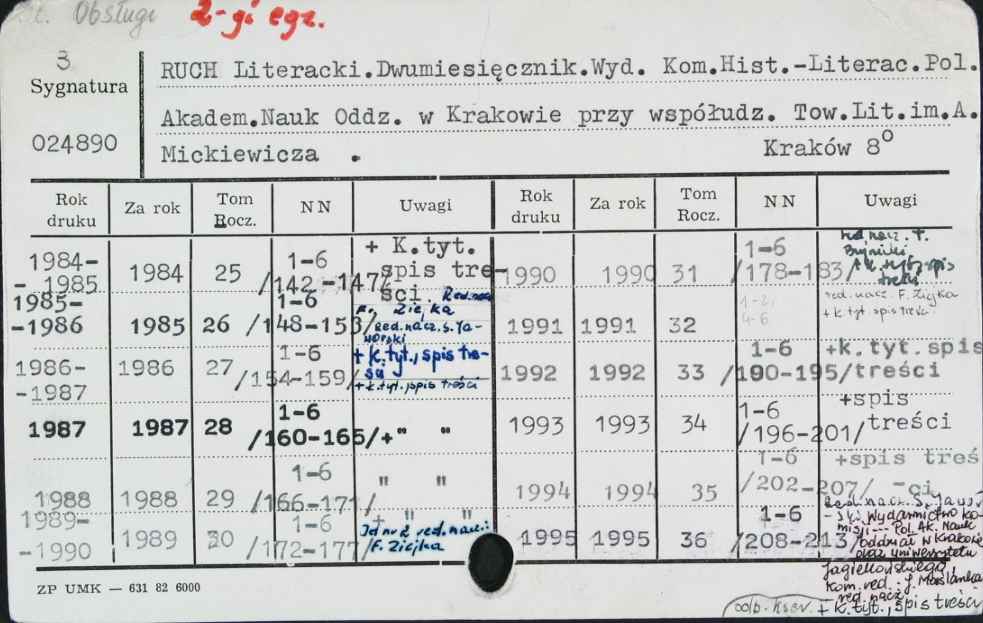 Obsługi 2-gi egz.
3
Sygnatura
024890
RUCH Literacki.Dwumiesięcznik.Wyd. Kom.Hist.-Literac.Pol.
Akadem.Nauk Oddz. w Krakowie przy współudz. Tow.Lit.im.A.
Mickiewicza . Kraków 8°
Rok druku Za rok Tom Rocz. NN Uwagi Rok druku Za rok Tom Rocz. NN Uwagi
1984-
-1985 1984 25 1-6 /142-147/ + K.tyt. spis tre-ści. Red.nacz.
F. Ziejka
1985-
-1986 1985 26 1-6 /148-153/ Red.nacz.S.Ja-
worski
1986-
-1987 1986 27 1-6 /154-159/ + k.tyt., spis tre-
+ k.tyt., spis treści
1987 1987 28 1-6 /160-165/ + " "
1988 1988 29 1-6 /166-171/ " "
1989-
-1990 1989 30 1-6 /172-177/ + " "
red.nacz:
F. Ziejka
1990 1990 31 1-6 /178-183/ red.nacz. F.
+ k. tyt. spis
treści
1991 1991 32 1-2,
4-6 red.nacz. F. Ziejka
+ k tyt. spis treści
1992 1992 33 1-6 /190-195/ +k.tyt.spis
treści
1993 1993 34 1-6 /196-201/ +spis
treści
1994 1994 35 1-6 /202-207/ +spis treś
-ci
1995 1995 36 1-6 /208-213/ Red.nacz. S. Jawor-
Wydawnictwo Ko-
misji Pol. Ak. Nauk
oddział w Krakowie
oraz Uniwersytetu
Jagiellońskiego,
Kom.red.: J. Maślanka
red. nacz.
+ k. tyt., spis treści
ZP UMK — 631 82 6000